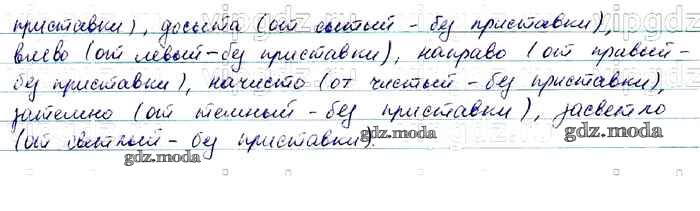 приставки), досыта (от сытый - без приставки),
влево (от левый - без приставки), направо (от правый -
без приставки), начисто (от чистый - без приставки),
затемно (от темный - без приставки), засветло
(от светлый - без приставки).
gdz.moda gdz.moda